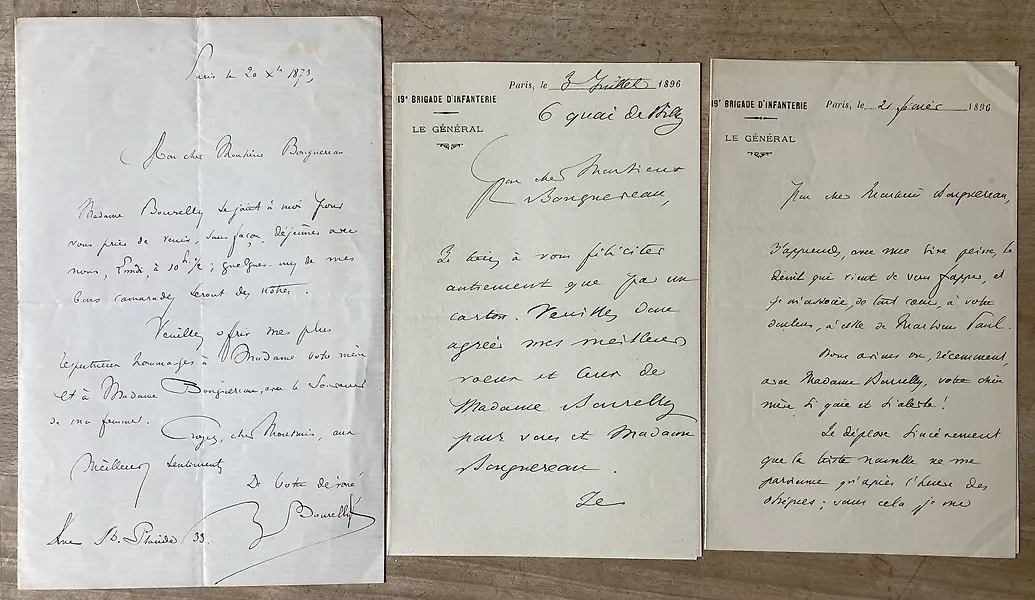 Paris le 20 Xbre 1873,
Mon cher Monsieur Bouguereau
Madame Bourelly se joint à moi pour
vous prier de venir, sans façon, déjeuner avec
nous, Lundi, à 10 h 1/2 ; quelques uns de mes
bons camarades seront des nôtres.
Veuillez offrir mes plus
respectueux hommages à Madame votre mère
et à Madame Bouguereau, avec le Souvenir
de ma femme.
Croyez, cher Monsieur, aux
Meilleurs Sentiments
De votre dévoué
Bourelly
Rue 33
19e BRIGADE D'INFANTERIE
LE GÉNÉRAL
Paris, le 3 Juillet 1896
6 quai de Billy
Mon cher Monsieur
Bouguereau,
Je tiens à vous féliciter
autrement que par un
carton. Veuillez donc
agréer mes meilleurs
voeux et ceux de
Madame Bourelly
pour vous et Madame
Bouguereau.
Je
19e BRIGADE D'INFANTERIE
LE GÉNÉRAL
Paris, le 21 février 1896
Mon cher Monsieur Bouguereau,
J'apprends, avec une vive peine, le
deuil qui vient de vous frapper, et
je m'associe, de tout coeur, à votre
douleur, à celle de Monsieur Paul.
Nous avions vu, récemment,
avec Madame Bourelly, votre chère
mère, si gaie et si alerte !
Je déplore sincèrement
que la triste nouvelle ne me
parvienne qu'après l'heure des
obsèques ; sans cela je me